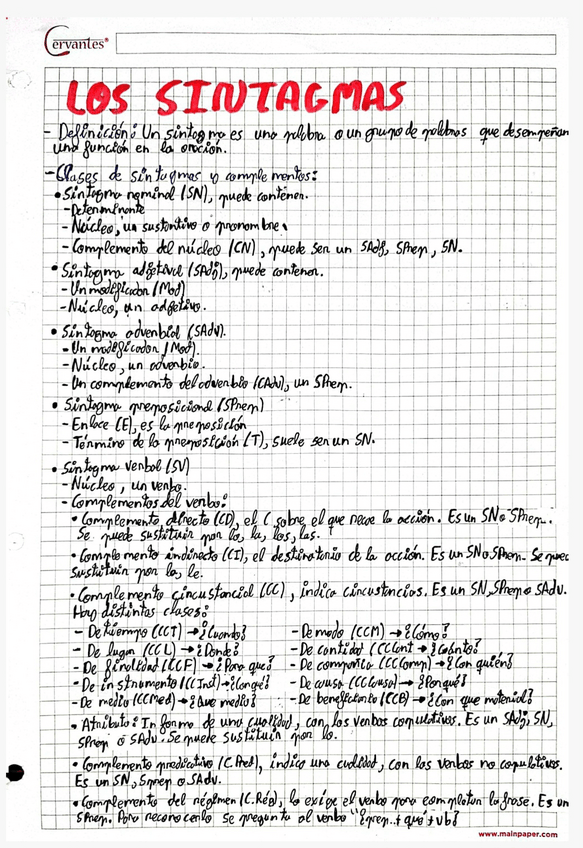 Cervantes®
LOS SINTAGMAS
- Definición: Un sintagma es una palabra o un grupo de palabras que desempeñan
una función en la oración.
- Clases de sintagmas y complementos:
• Sintagma nominal (SN), puede contener.
- Determinante
- Núcleo, un sustantivo o pronombre.
- Complemento del núcleo (CN), puede ser un SAdj, SPrep, SN.
• Sintagma adjetival (SAdj), puede contener.
- Un modificador (Mod)
- Núcleo, un adjetivo.
• Sintagma adverbial (SAdv).
- Un modificador (Mod).
- Núcleo, un adverbio.
- Un complemento del adverbio (CAdv), un SPrep.
• Sintagma preposicional (SPrep)
- Enlace (E), es la preposición
- Término de la preposición (T), suele ser un SN.
• Sintagma verbal (SV)
- Núcleo, un verbo.
- Complementos del verbo:
• Complemento directo (CD), el C sobre el que recae la acción. Es un SN o SPrep.
Se puede sustituir por lo, la, los, las.
• Complemento indirecto (CI), el destinatario de la acción. Es un SN o SPrep. Se puec
sustituir por lo, le.
• Complemento circustancial (CC), indica circustancias. Es un SN, SPrep o SAdv.
Hay distintas clases:
- De tiempo (CCT) → ¿Cuando?
- De modo (CCM) → ¿Cómo?
- De lugar (CCL) → ¿Dónde?
- De cantidad (CCCant → ¿Cuánto?
- De finalidad (CCF) → ¿Para qué?
- De compañia (CCComp) → ¿Con quién?
- De instrumento (CCInst) → ¿Con qué?
- De causa (CCCausa) → ¿Porqué?
- De medio (CCMed) → ¿Que medio?
- De beneficiario (CCB) → ¿Con que material?
• Atributo: In forma de una cualidad, con los verbos copulativos. Es un SAdj, SN,
SPrep o SAdv. Se puede sustituir por lo.
• Complemento predicativo (C.Pred), indica una cualidad, con los verbos no copulativos.
Es un SN, Sprep o SAdv.
• Complemento del régimen (C.Rég), lo exige el verbo para completar la frase. Es un
SPrep. Para reconocerlo se pregunta al verbo "¿prep. + qué + vb?
www.mainpaper.com